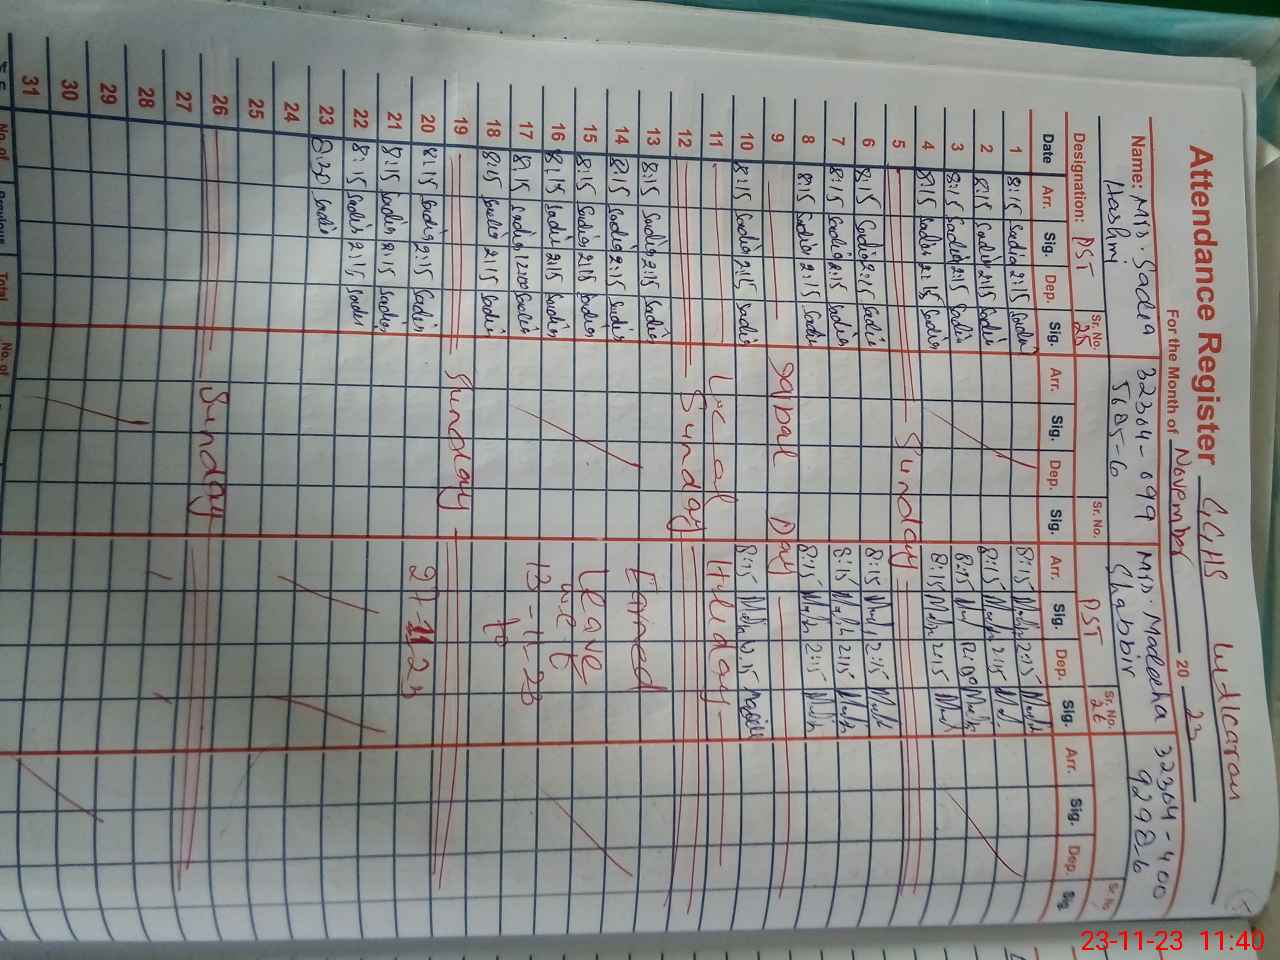 Attendance Register
For the Month of November 20 23
Name: Mrs. Sadia Hashmi 32304-099
Mrs. Madeeha Shabbir 32304-400
9298-6
Designation: PST Sr. No. 25 Sr. No. PST Sr. No. 26 Sr. No.
Date Arr. Sig. Dep. Sig. Arr. Sig. Dep. Sig. Arr. Sig. Dep. Sig. Arr. Sig. Dep. Sig.
1 8:15 Sadia 2:15 Sadia 8:15 2:15
2 8:15 Sadia 2:15 Sadia 8:15 2:15
3 8:15 Sadia 2:15 Sadia 8:15
4 8:15 Sadia 2:15 Sadia 8:15 2:15
5 Sunday
6 8:15 Sadia 2:15 Sadia 8:15 2:15
7 8:15 Sadia 2:15 Sadia 8:15 2:15
8 8:15 Sadia 2:15 Sadia 8:15 2:15
9 Iqbal Day
10 8:15 Sadia 2:15 Sadia 8:15
11 Local Holiday
12 Sunday
13 8:15 Sadia 2:15 Sadia Earned
14 8:15 Sadia 2:15 Sadia
15 8:15 Sadia 2:15 Sadia Leave
16 8:15 Sadia 2:15 Sadia w.e.f
17 8:15 Sadia 12:00 Sadia
18 8:15 Sadia 2:15 Sadia to
19 Sunday
20 8:15 Sadia 2:15 Sadia
21 8:15 Sadia 2:15 Sadia
22 8:15 Sadia 2:15 Sadia
23 8:20 Sadia
24
25
26 Sunday
27
28
29
30
31
No. of Previous Total No. of
23-11-23 11:40